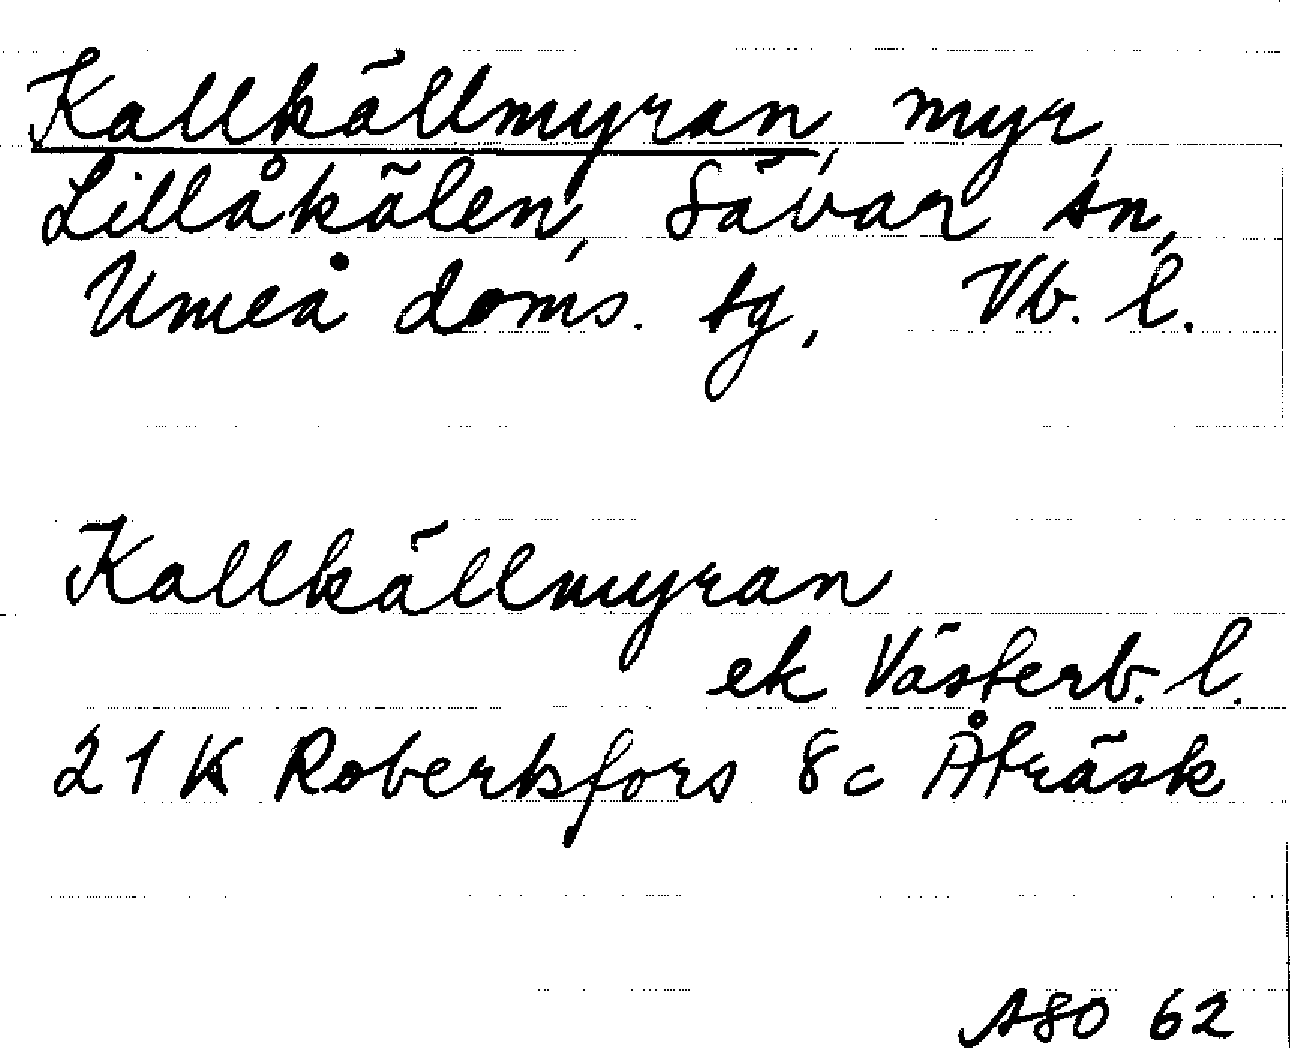 Kallkällmyran, myr,
Lillåkälen, Sävar sn,
Umeå doms. tg, Vb. l.
Kallkällmyran
ek Västerb. l.
21 K Robertsfors 8c Åträsk
ASO 62